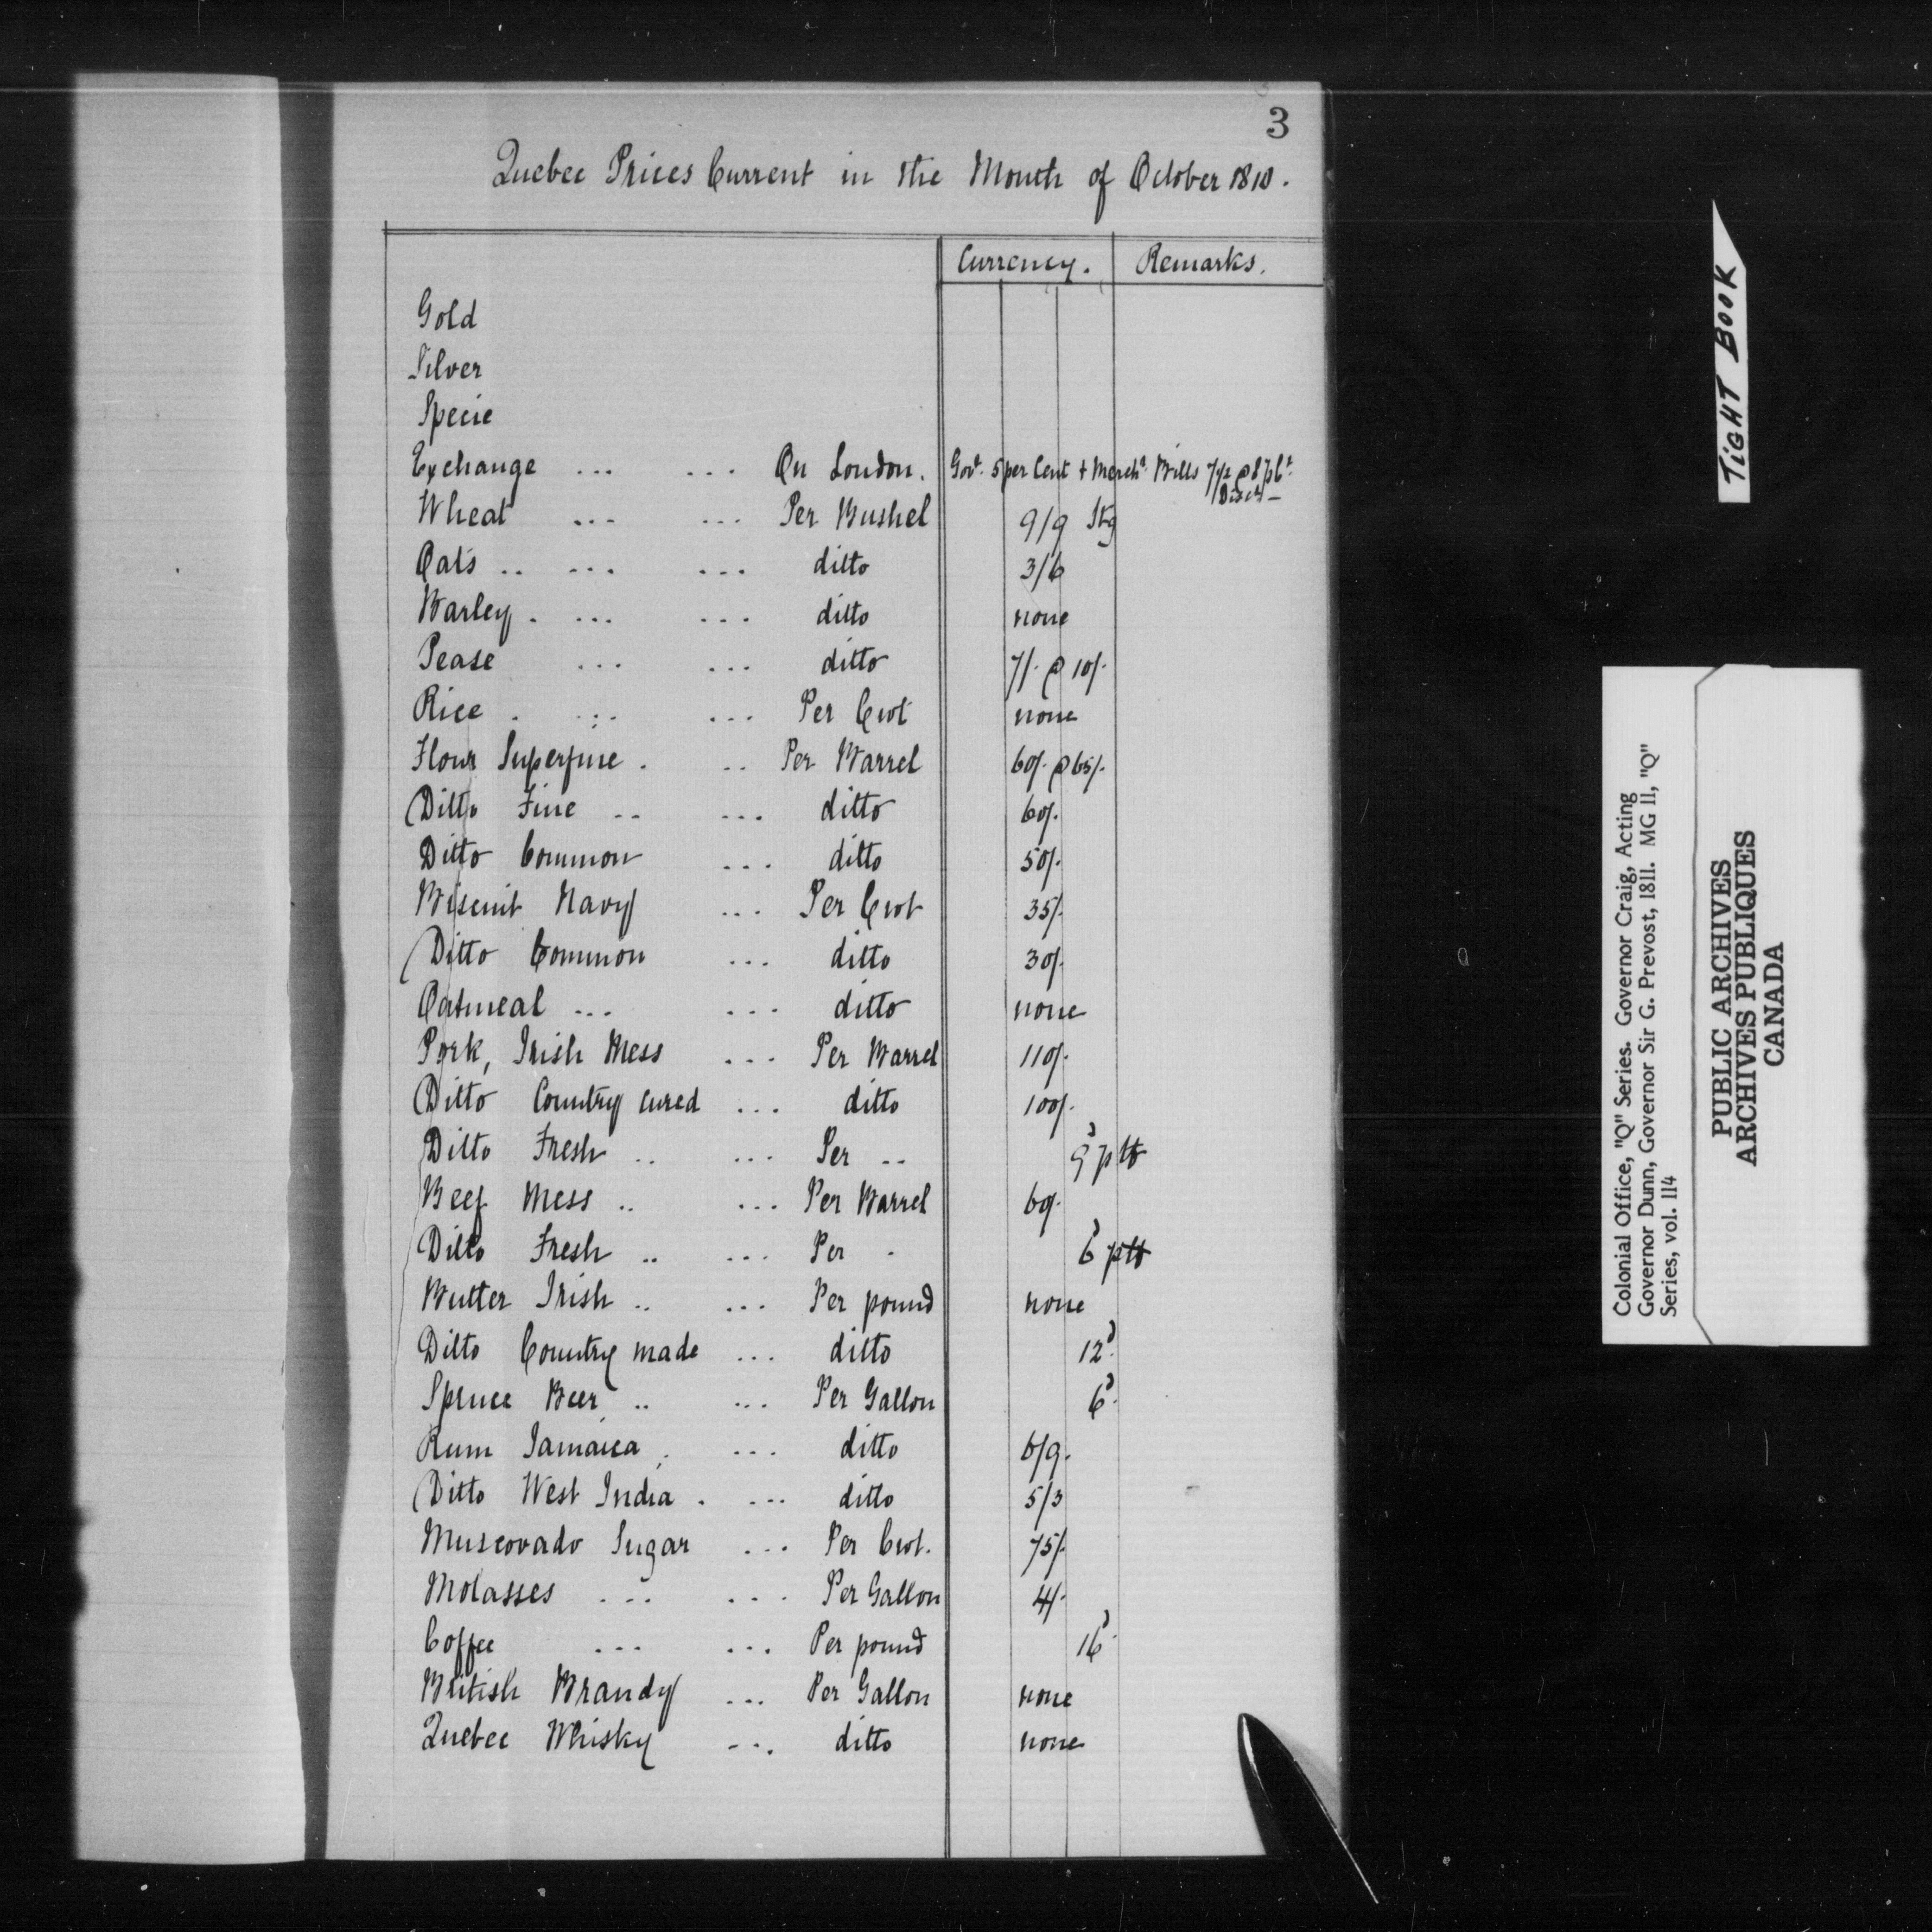 3
Quebec Prices Current in the Month of October 1810.
Currency. Remarks.
Gold
Silver
Specie
Exchange ... ... On London. Govt. 5 per Cent + Mercht. Bills 7 1/2 @ 8 p Ct.
Disct -
Wheat ... ... Per Bushel 9/9 Stg
Oats .. ... ... ditto 3/6
Barley . ... ... ditto none
Pease ... ... ditto 7/. @ 10/.
Rice . ... ... Per Cwt none
Flour Superfine . .. Per Barrel 60/. @ 65/.
Ditto Fine .. ... ditto 60/.
Ditto Common ... ditto 50/.
Biscuit Navy ... Per Cwt 35/.
Ditto Common ... ditto 30/.
Oatmeal ... ... ditto none
Pork, Irish Mess ... Per Barrel 110/.
Ditto Country cured ... ditto 100/.
Ditto Fresh .. ... Per -- 9d p lb
Beef Mess .. ... Per Barrel 60/.
Ditto Fresh .. ... Per - 6d p lb
Butter Irish .. ... Per pound none
Ditto Country made ... ditto 12d.
Spruce Beer .. ... Per Gallon 6d.
Rum Jamaica . ... ditto 6/9.
Ditto West India . ... ditto 5/3
Muscovado Sugar ... Per Cwt. 75/.
Molasses ... ... Per Gallon 4/.
Coffee ... ... Per pound 16d.
British Brandy ... Per Gallon none
Quebec Whisky ... ditto none
TIGHT BOOK
Colonial Office, "Q" Series. Governor Craig, Acting
Governor Dunn, Governor Sir G. Prevost, 1811. MG 11, "Q"
Series, vol. 114
PUBLIC ARCHIVES
ARCHIVES PUBLIQUES
CANADA